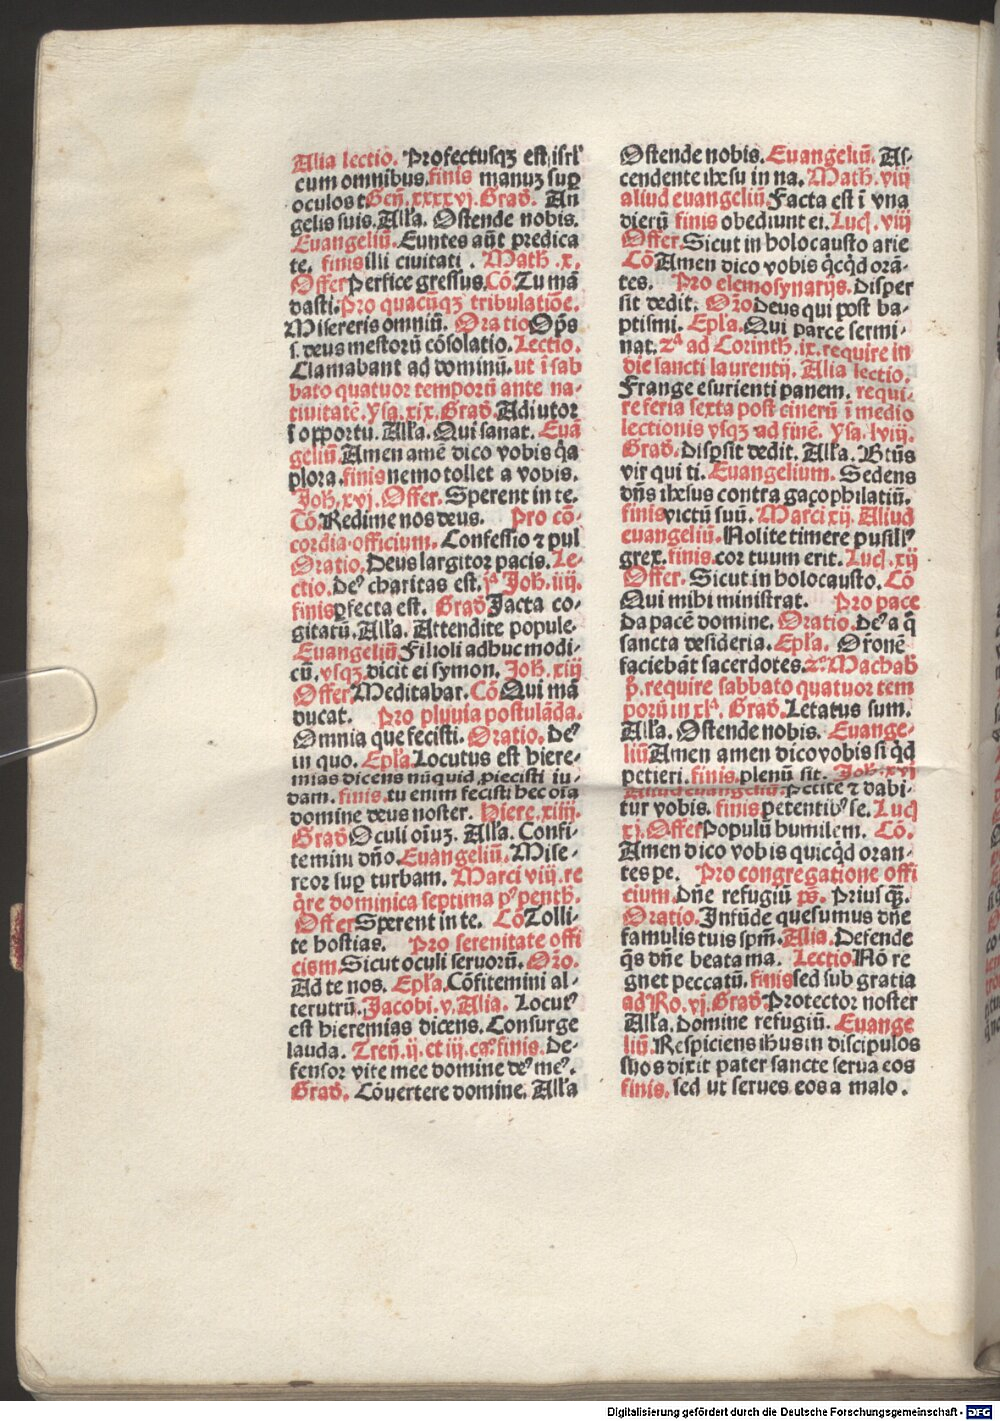 Alia lectio. Profectusqꝫ est isrl'
cum omnibus. finis manuꝫ suꝑ
oculos t Geñ. xxxxvj. Grad̄. An
gelis suis. Alľa. Ostende nobis.
Euangeliū. Euntes aūt predica
te. finis illi ciuitati . Math̄ .x.
Offer Perfice gressus. Cō. Tu mā
dasti. Pro quacūqꝫ tribulatiōe.
Misereris omniū. Oratio Ops̄
s. deus mestorū cōsolatio. Lectio.
Clamabant ad dominū. ut ī sab
bato quatuor temporū ante na-
tiuitatē. Ysa. xix. Grad̄. Adiutor
ī opportu. Alľa. Qui sanat. Euā
geliū Amen amē dico vobis q̄a
plora. finis nemo tollet a vobis.
Joh̄. xvj. Offer. Sperent in te.
Cō. Redime nos deus. Pro cō-
cordia officium. Confessio ⁊ pul
Oratio. Deus largitor pacis. Le-
ctio. Deꝰ charitas est. jᵃ Joh̄. iiij.
finis ꝑfecta est. Grad̄ Jacta co-
gitatū. Alľa. Attendite popule.
Euangeliū Filioli adhuc modi-
cū. vsqꝫ dicit ei symon. Joh̄. xiij
Offer Meditabar. Cō Qui mā
ducat. Pro pluuia postulāda.
Omnia que fecisti. Oratio. Deꝰ
in quo. Epľa. Locutus est hiere-
mias dicens nūquid ꝓiecisti iu-
dam. finis. tu enim fecisti hec oīa
domine deus noster. Hiere. xiiij.
Grad̄ Oculi oīuꝫ. Alľa. Confi-
temini dn̄o. Euangeliū. Mise-
reor suꝑ turbam. Marci viij. re
q̄re dominica septima pꝰ penth̄.
Offer Sperent in te. Cō Tolli-
te hostias. Pro serenitate offi
cism. Sicut oculi seruorū. Or̄o.
Ad te nos. Epľa. Cōfitemini al-
terutrū. Jacobi. v. Alia. Locutꝰ
est hieremias dicens. Consurge
lauda. Treñ. ij. et iij. caꝰ. finis. De-
fensor vite mee domine deꝰ meꝰ.
Grad̄. Cōuertere domine. Alľa
Ostende nobis. Euangeliū. As-
cendente ihesu in na. Math̄. viij
aliud euangeliū. Facta est ī vna
dierū finis obediunt ei. Luc̄. viij
Offer. Sicut in holocausto arie
Cō Amen dico vobis q̄cq̄d orā-
tes. Pro elemosynarijs. Disper
sit dedit. Or̄o Deus qui post ba-
ptismi. Epľa. Qui parce semi-
nat. 2ᵃ ad Corinth̄. ix. require in
die sancti laurentij. Alia lectio.
Frange esurienti panem. requi-
re feria sexta post cinerū ī medio
lectionis vsqꝫ ad finē. Ysa. lviij.
Grad̄. Disꝑsit dedit. Alľa. Btūs
vir qui ti. Euangelium. Sedens
dn̄s ihesus contra gaçophilatiū.
finis victū suū. Marci xij. Aliud
euangeliū. Nolite timere pusillꝰ
grex. finis. cor tuum erit. Luc̄. xij
Offer. Sicut in holocausto. Cō
Qui mihi ministrat. Pro pace
Da pacē domine. Oratio. Deꝰ a q̄
sancta desideria. Epľa. Or̄onē
faciebāt sacerdotes. 2ꝰ. Machab̄
p̄. require sabbato quatuor tem
porū in xlᵃ. Grad̄. Letatus sum.
Alľa. Ostende nobis. Euange-
liū Amen amen dico vobis si q̄d
petieri. finis. plenū sit. Joh̄. xvj
Aliud euangeliū. Petite ⁊ dabi-
tur vobis. finis petentibꝰ se. Luc̄
xj. Offer Populū humilem. Cō.
Amen dico vobis quicq̄d oran-
tes pe. Pro congregatione offi
cium. Dn̄e refugiū ps̄. Priusq̄ꝫ.
Oratio. Infūde quesumus dn̄e
famulis tuis spm̄. Alia. Defende
q̄s dn̄e beata ma. Lectio Nō re
gnet peccatū. finis sed sub gratia
ad Ro. vj. Grad̄ Protector noster
Alľa. Domine refugiū. Euange
liū. Respiciens ihus in discipulos
suos dixit pater sancte serua eos
finis. sed ut serues eos a malo.
Digitalisierung gefördert durch die Deutsche Forschungsgemeinschaft - DFG